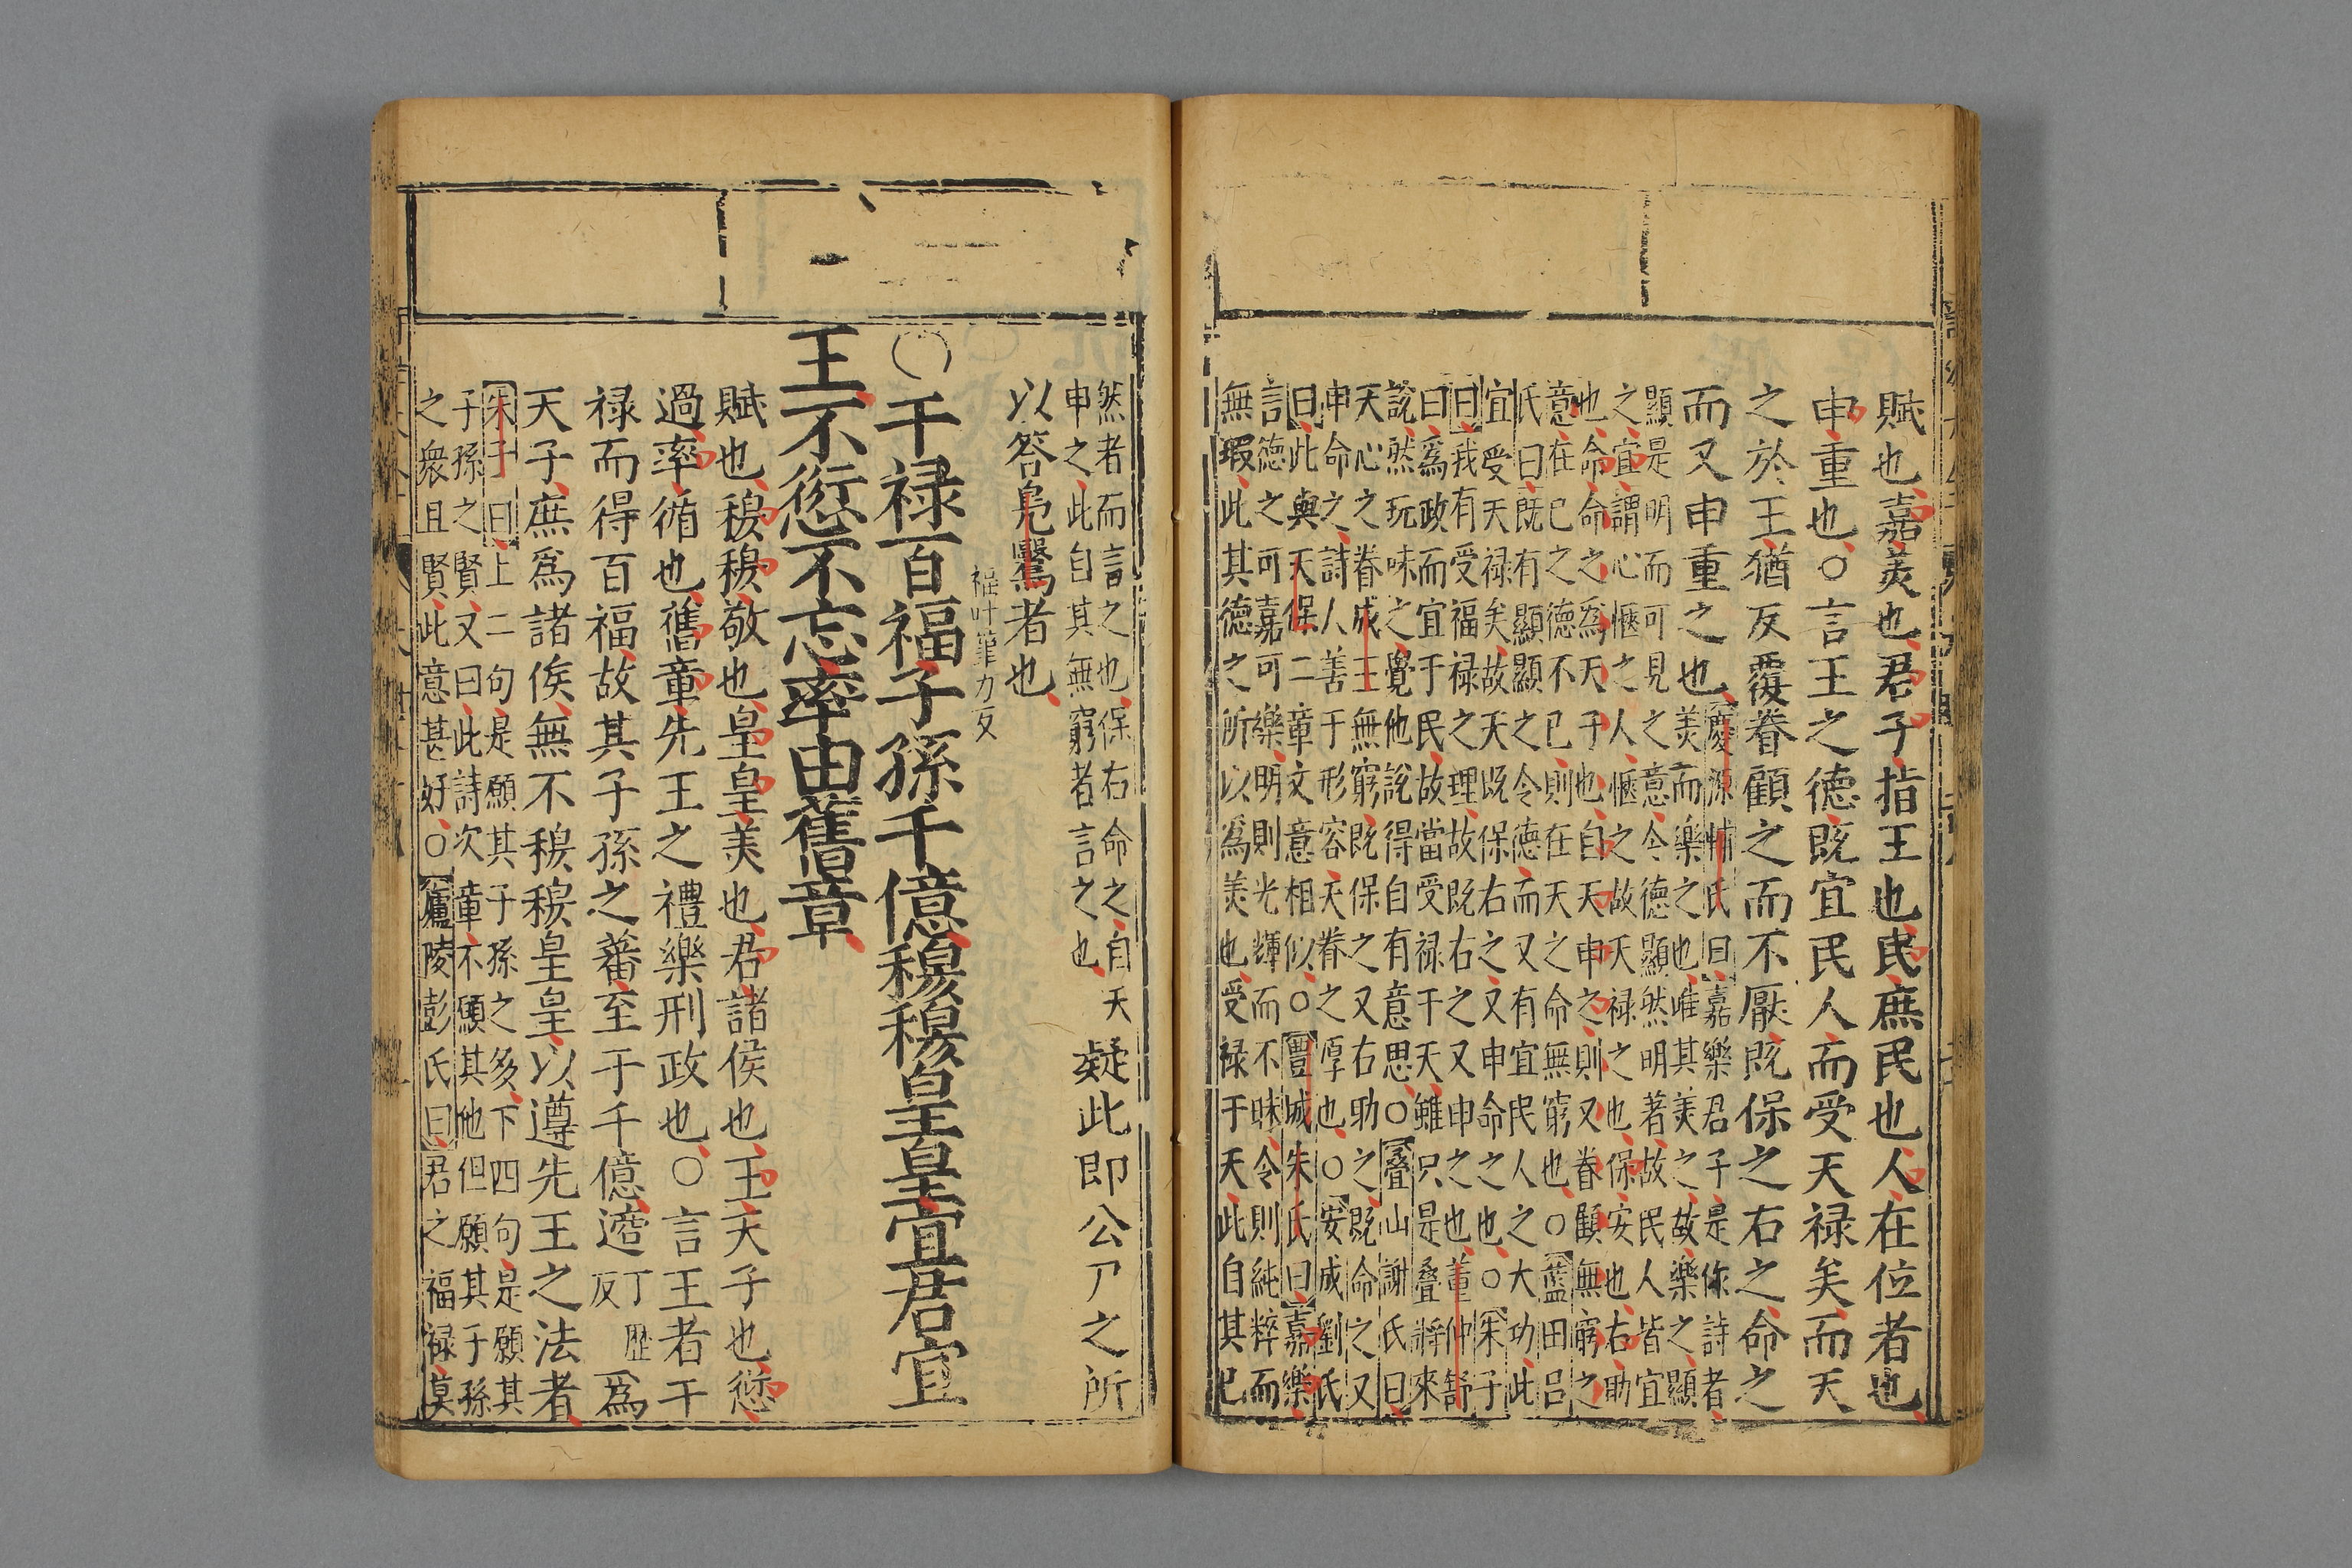 賦也嘉美也君子指王也民庶民也人在位者也
申重也○言王之德既宜民人而受天禄矣而天
之於王猶反覆眷顧之而不厭既保之右之命之
而又申重之也
慶源輔氏曰嘉樂君子是作詩者
美而樂之也唯其美之故樂之顯
顯是明而可見之意令德顯然明著故民人皆宜
之宜謂心愜之人愜之故天禄之也保安也右助
也命命之爲天子也自天申之則又眷顧無窮之
意在已之德不已則在天之命無窮也○藍田吕
氏曰既有顯顯之令德而又有宜民人之大功此
宜受天禄矣故天既保右之又申命之也○朱子
曰我有受福禄之理故既右之又申之也董仲舒
曰爲政而宜于民故當受禄于天雖只是疊將來
說然玩味之覺他所說得自有意思○疊山謝氏曰
天心之眷成王無窮既保之又右助之既命之又
申命之詩人善于形容天眷之厚也○安成劉氏
曰此與天保二章文意相似○豐城朱氏曰嘉樂
言德之可嘉可樂明則光輝而不昧令則純粹而
無瑕此其德之所以爲美也受禄于天此自其已
然者而言之也保右命之自天
申之此自其無窮者言之也
疑此即公尸之所
以答鳧鷖者也
福叶筆力反
○千禄百福子孫千億穆穆皇皇宜君宜
王不愆不忘率由舊章
賦也穆穆敬也皇皇美也君諸侯也王天子也愆
過率循也舊章先王之禮樂刑政也○言王者干
禄而得百福故其子孫之蕃至于千億適丁歷反爲
天子庶爲諸侯無不穆穆皇皇以遵先王之法者
朱子曰上二句是願其子孫之多下四句是願其
子孫之賢又曰此詩次章不願其他但願其子孫
之衆且賢此意甚好○廬陵彭氏曰君之福禄莫